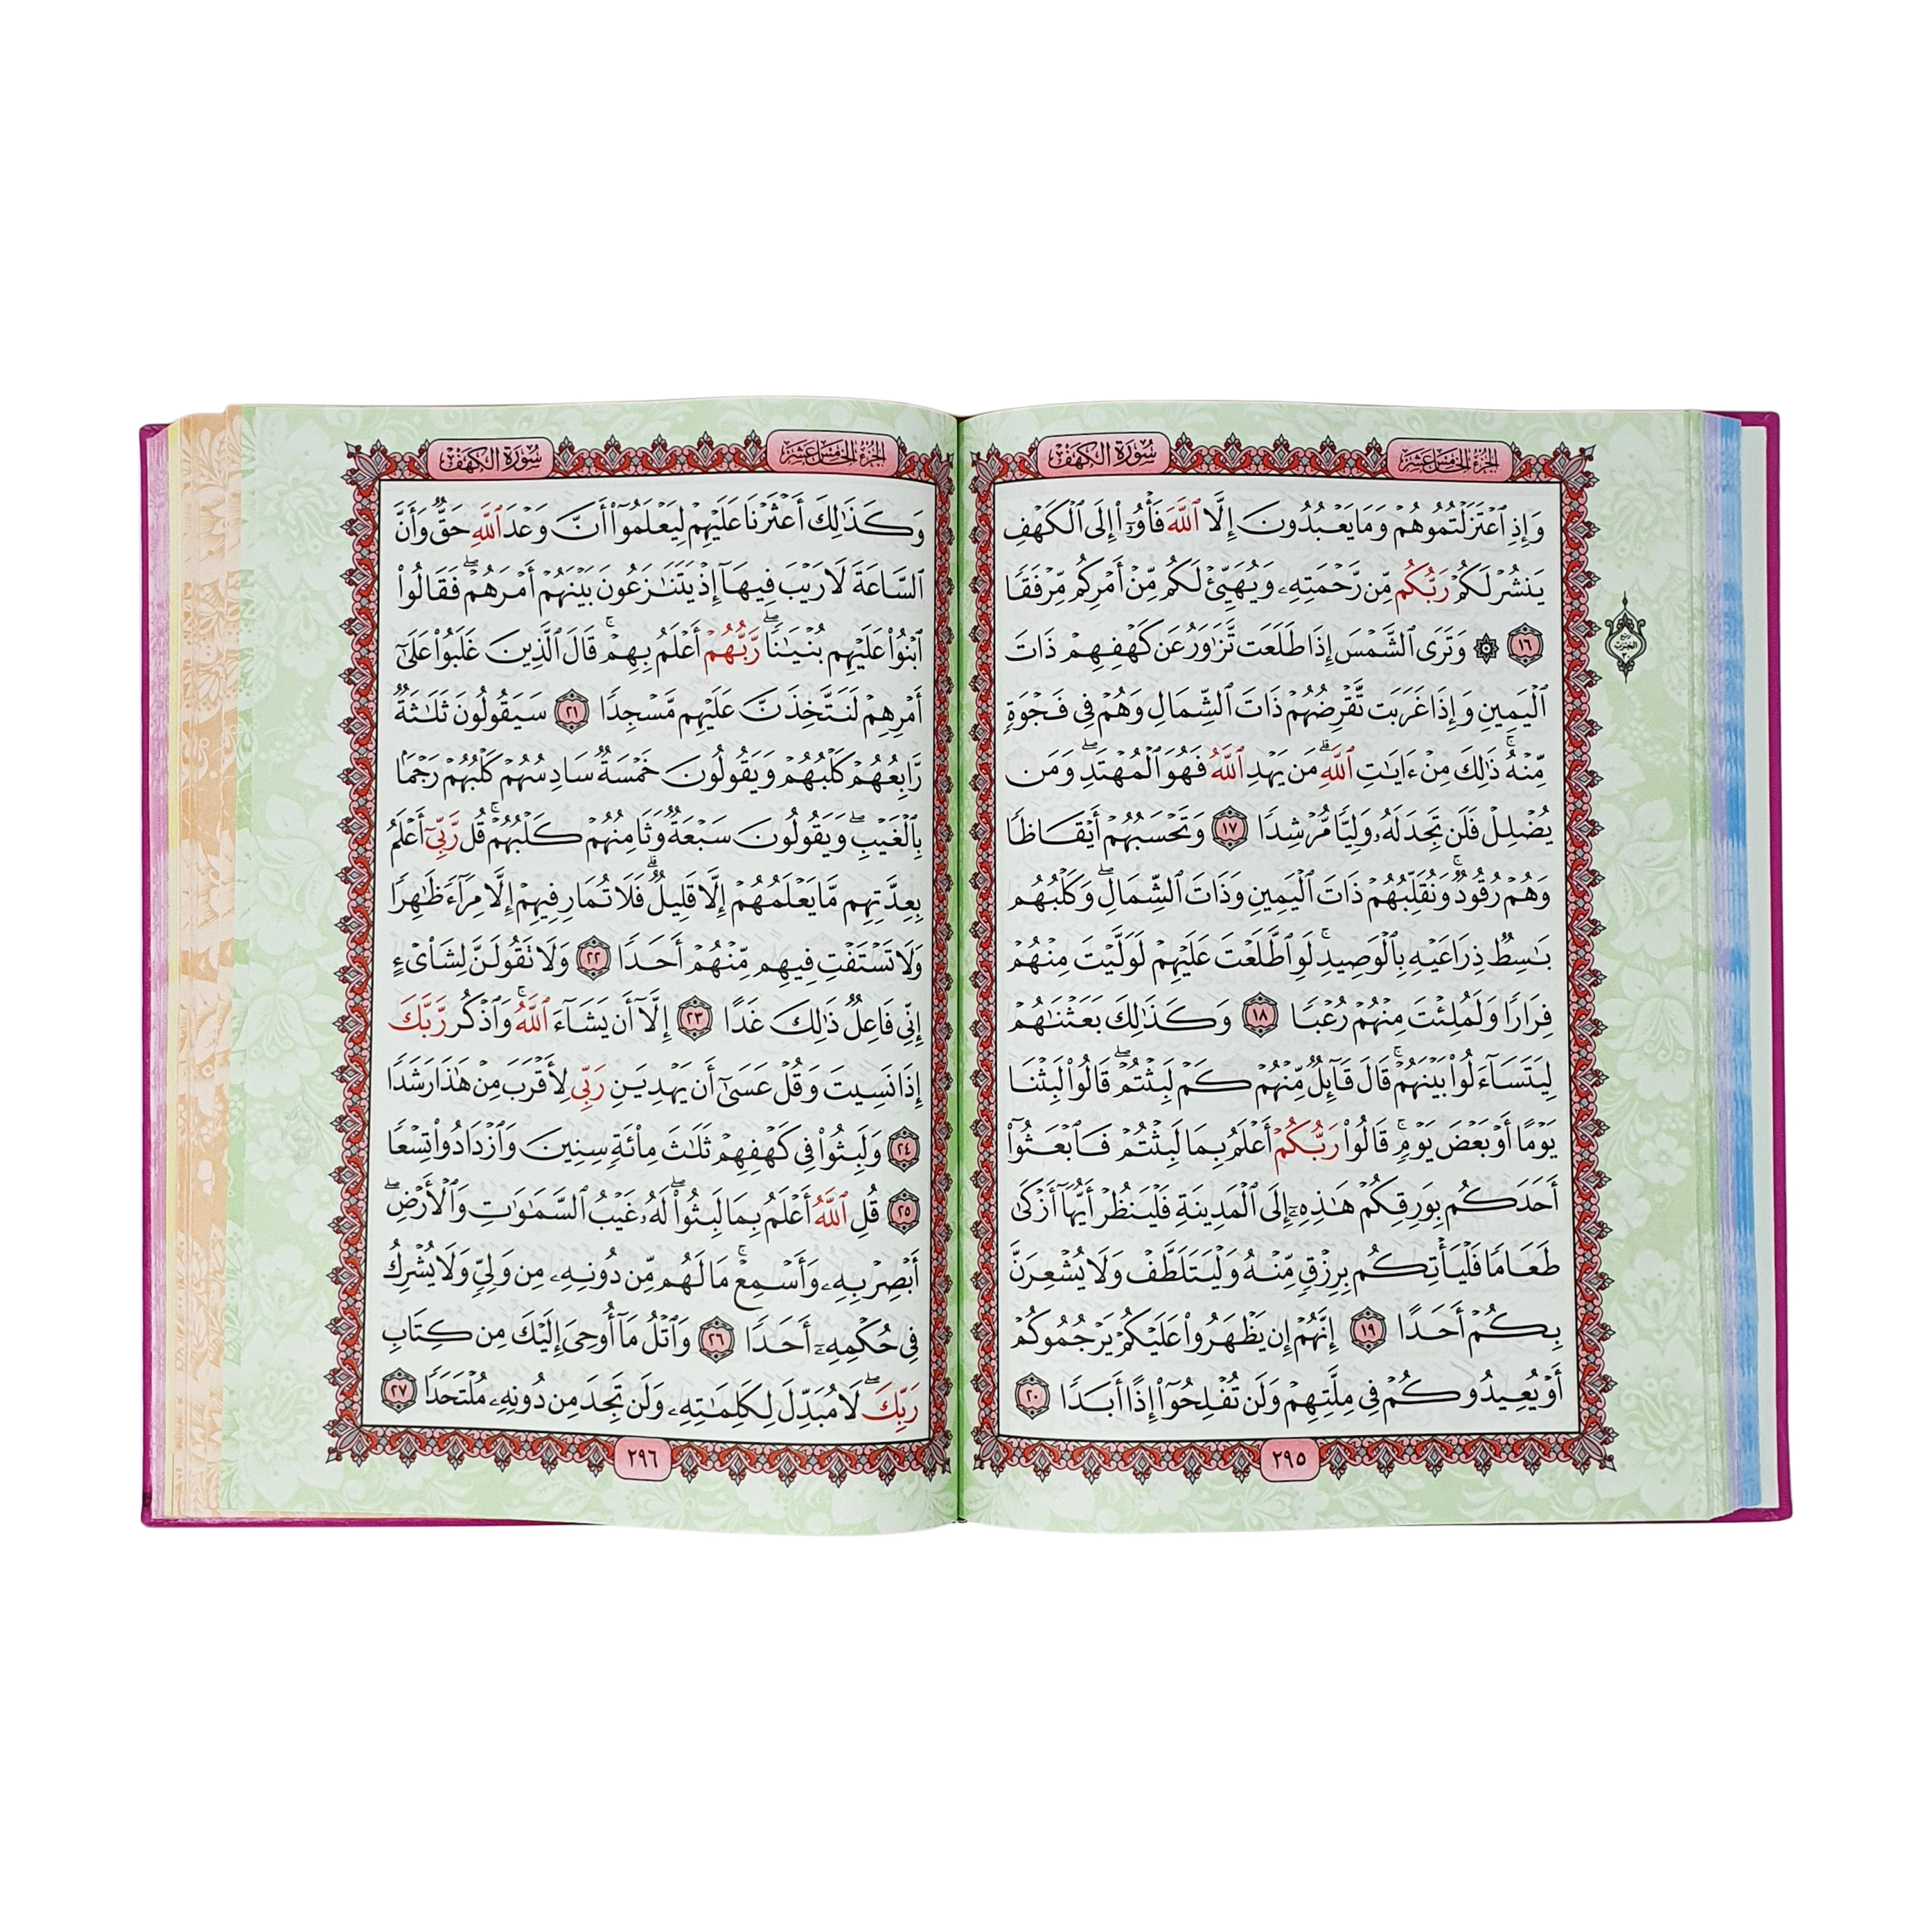 الجزء الخامس عشر
سورة الكهف
وَإِذِ ٱعۡتَزَلۡتُمُوهُمۡ وَمَا يَعۡبُدُونَ إِلَّا ٱللَّهَ فَأۡوُۥٓاْ إِلَى ٱلۡكَهۡفِ
يَنشُرۡ لَكُمۡ رَبُّكُم مِّن رَّحۡمَتِهِۦ وَيُهَيِّئۡ لَكُم مِّنۡ أَمۡرِكُم مِّرۡفَقٗا
١٦ ۞ وَتَرَى ٱلشَّمۡسَ إِذَا طَلَعَت تَّزَٰوَرُ عَن كَهۡفِهِمۡ ذَاتَ
ٱلۡيَمِينِ وَإِذَا غَرَبَت تَّقۡرِضُهُمۡ ذَاتَ ٱلشِّمَالِ وَهُمۡ فِي فَجۡوَةٖ
مِّنۡهُۚ ذَٰلِكَ مِنۡ ءَايَٰتِ ٱللَّهِۗ مَن يَهۡدِ ٱللَّهُ فَهُوَ ٱلۡمُهۡتَدِۖ وَمَن
يُضۡلِلۡ فَلَن تَجِدَ لَهُۥ وَلِيّٗا مُّرۡشِدٗا ١٧ وَتَحۡسَبُهُمۡ أَيۡقَاظٗا
وَهُمۡ رُقُودٞۚ وَنُقَلِّبُهُمۡ ذَاتَ ٱلۡيَمِينِ وَذَاتَ ٱلشِّمَالِۖ وَكَلۡبُهُم
بَٰسِطٞ ذِرَاعَيۡهِ بِٱلۡوَصِيدِۚ لَوِ ٱطَّلَعۡتَ عَلَيۡهِمۡ لَوَلَّيۡتَ مِنۡهُمۡ
فِرَارٗا وَلَمُلِئۡتَ مِنۡهُمۡ رُعۡبٗا ١٨ وَكَذَٰلِكَ بَعَثۡنَٰهُمۡ
لِيَتَسَآءَلُواْ بَيۡنَهُمۡۚ قَالَ قَآئِلٞ مِّنۡهُمۡ كَمۡ لَبِثۡتُمۡۖ قَالُواْ لَبِثۡنَا
يَوۡمًا أَوۡ بَعۡضَ يَوۡمٖۚ قَالُواْ رَبُّكُمۡ أَعۡلَمُ بِمَا لَبِثۡتُمۡ فَٱبۡعَثُوٓاْ
أَحَدَكُم بِوَرِقِكُمۡ هَٰذِهِۦٓ إِلَى ٱلۡمَدِينَةِ فَلۡيَنظُرۡ أَيُّهَآ أَزۡكَىٰ
طَعَامٗا فَلۡيَأۡتِكُم بِرِزۡقٖ مِّنۡهُ وَلۡيَتَلَطَّفۡ وَلَا يُشۡعِرَنَّ
بِكُمۡ أَحَدًا ١٩ إِنَّهُمۡ إِن يَظۡهَرُواْ عَلَيۡكُمۡ يَرۡجُمُوكُمۡ
أَوۡ يُعِيدُوكُمۡ فِي مِلَّتِهِمۡ وَلَن تُفۡلِحُوٓاْ إِذًا أَبَدٗا ٢٠
٢٩٥
ربع
الحزب
٣٠
الجزء الخامس عشر
سورة الكهف
وَكَذَٰلِكَ أَعۡثَرۡنَا عَلَيۡهِمۡ لِيَعۡلَمُوٓاْ أَنَّ وَعۡدَ ٱللَّهِ حَقّٞ وَأَنَّ
ٱلسَّاعَةَ لَا رَيۡبَ فِيهَآ إِذۡ يَتَنَٰزَعُونَ بَيۡنَهُمۡ أَمۡرَهُمۡۖ فَقَالُواْ
ٱبۡنُواْ عَلَيۡهِم بُنۡيَٰنٗاۖ رَّبُّهُمۡ أَعۡلَمُ بِهِمۡۚ قَالَ ٱلَّذِينَ غَلَبُواْ عَلَىٰٓ
أَمۡرِهِمۡ لَنَتَّخِذَنَّ عَلَيۡهِم مَّسۡجِدٗا ٢١ سَيَقُولُونَ ثَلَٰثَةٞ
رَّابِعُهُمۡ كَلۡبُهُمۡ وَيَقُولُونَ خَمۡسَةٞ سَادِسُهُمۡ كَلۡبُهُمۡ رَجۡمَۢا
بِٱلۡغَيۡبِۖ وَيَقُولُونَ سَبۡعَةٞ وَثَامِنُهُمۡ كَلۡبُهُمۡۚ قُل رَّبِّيٓ أَعۡلَمُ
بِعِدَّتِهِم مَّا يَعۡلَمُهُمۡ إِلَّا قَلِيلٞۗ فَلَا تُمَارِ فِيهِمۡ إِلَّا مِرَآءٗ ظَٰهِرٗا
وَلَا تَسۡتَفۡتِ فِيهِم مِّنۡهُمۡ أَحَدٗا ٢٢ وَلَا تَقُولَنَّ لِشَاْيۡءٍ
إِنِّي فَاعِلٞ ذَٰلِكَ غَدًا ٢٣ إِلَّآ أَن يَشَآءَ ٱللَّهُۚ وَٱذۡكُر رَّبَّكَ
إِذَا نَسِيتَ وَقُلۡ عَسَىٰٓ أَن يَهۡدِيَنِ رَبِّي لِأَقۡرَبَ مِنۡ هَٰذَا رَشَدٗا
٢٤ وَلَبِثُواْ فِي كَهۡفِهِمۡ ثَلَٰثَ مِاْئَةٖ سِنِينَ وَٱزۡدَادُواْ تِسۡعٗا
٢٥ قُلِ ٱللَّهُ أَعۡلَمُ بِمَا لَبِثُواْۖ لَهُۥ غَيۡبُ ٱلسَّمَٰوَٰتِ وَٱلۡأَرۡضِۖ
أَبۡصِرۡ بِهِۦ وَأَسۡمِعۡۚ مَا لَهُم مِّن دُونِهِۦ مِن وَلِيّٖ وَلَا يُشۡرِكُ
فِي حُكۡمِهِۦٓ أَحَدٗا ٢٦ وَٱتۡلُ مَآ أُوحِيَ إِلَيۡكَ مِن كِتَابِ
رَبِّكَۖ لَا مُبَدِّلَ لِكَلِمَٰتِهِۦ وَلَن تَجِدَ مِن دُونِهِۦ مُلۡتَحَدٗا ٢٧
٢٩٦